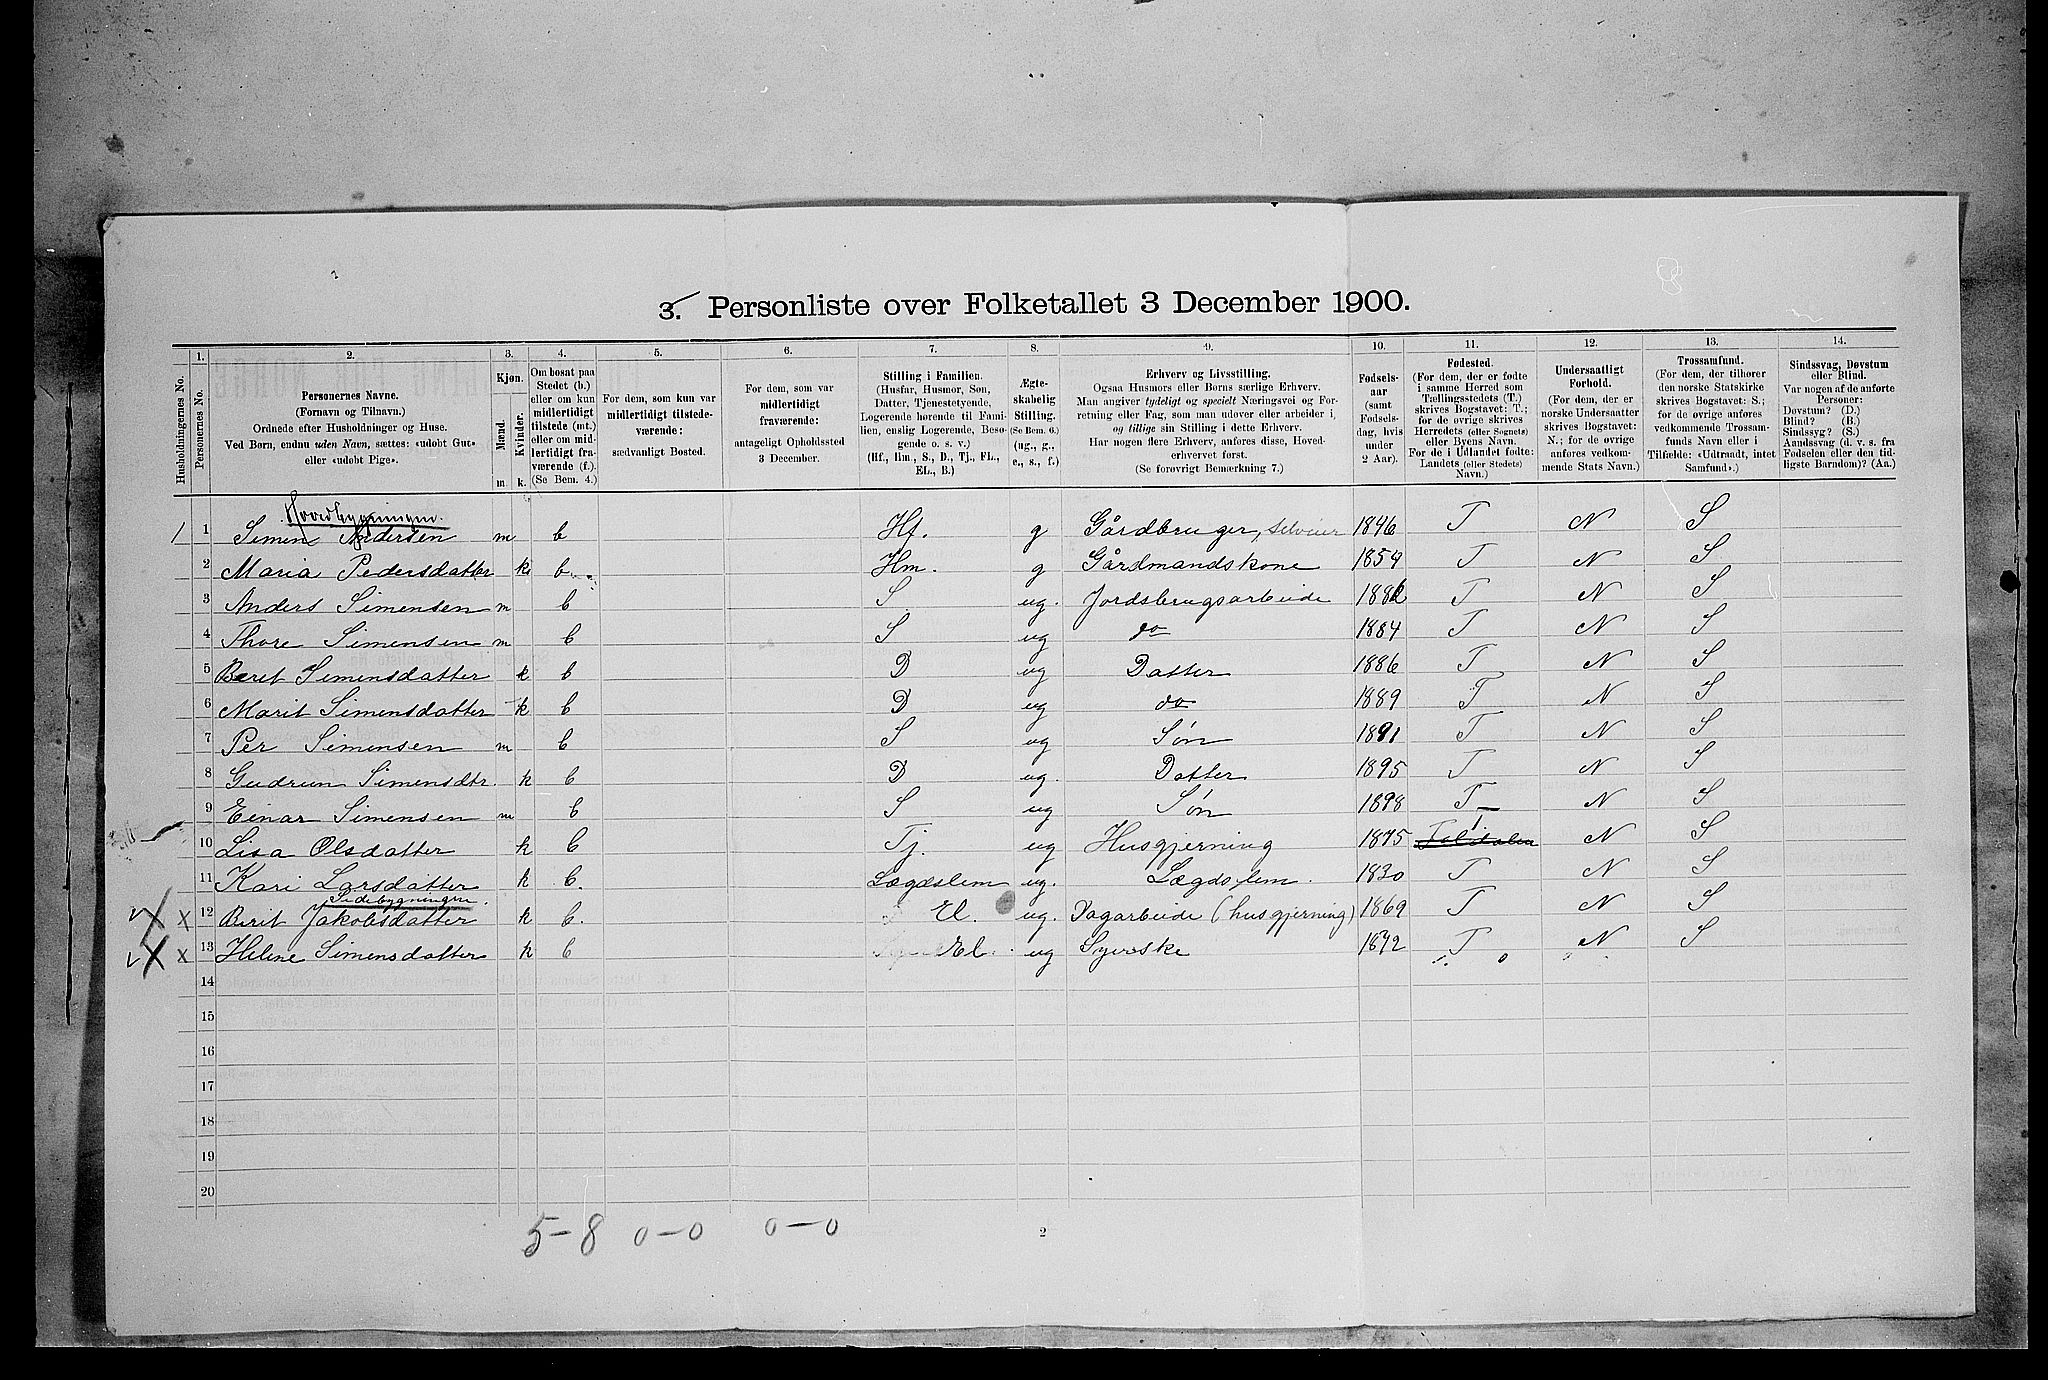 3. Personliste over Folketallet 3 December 1900.
1. 2. 3. 4. 5. 6. 7. 8. 9. 10. 11. 12. 13. 14.
Husholdningernes No.
Personernes No.
Personernes Navne.
(Fornavn og Tilnavn.)
Ordnede efter Husholdninger og Huse.
Ved Børn, endnu uden Navn, sættes: «udøbt Gut»
eller «udøbt Pige».
Kjøn.
Mænd. Kvinder.
m. k.
Om bosat paa
Stedet (b.)
eller om kun
midlertidigt
tilstede (mt.)
eller om mid-
lertidigt fra-
værende (f.).
(Se Bem. 4.)
For dem, som kun var
midlertidigt tilstede-
værende:
sædvanligt Bosted.
For dem, som var
midlertidigt
fraværende:
antageligt Opholdssted
3 December.
Stilling i Familien.
(Husfar, Husmor, Søn,
Datter, Tjenestetyende,
Logerende hørende til Fami-
lien, enslig Logerende, Besø-
gende o. s. v.)
(Hf., Hm., S., D., Tj., FL.,
EL., B.)
Ægte-
skabelig
Stilling.
(Se Bem. 6.)
(ug., g.,
e., s., f.)
Erhverv og Livsstilling.
Ogsaa Husmors eller Børns særlige Erhverv.
Man angiver tydeligt og specielt Næringsvei og For-
retning eller Fag, som man udøver eller arbeider i,
og tillige sin Stilling i dette Erhverv.
Har nogen flere Erhverv, anføres disse, Hoved-
erhvervet først.
(Se forøvrigt Bemærkning 7.)
Fødsels-
aar
(samt
Fødsels-
dag, hvis
under
2 Aar).
Fødested.
(For dem, der er fødte
i samme Herred som
Tællingsstedets (T.)
skrives Bogstavet: T.;
for de øvrige skrives
Herredets (eller Sognets)
eller Byens Navn.
For de i Udlandet fødte:
Landets (eller Stedets)
Navn.)
Undersaatligt
Forhold.
(For dem, der er
norske Undersaatter
skrives Bogstavet:
N.; for de øvrige
anføres vedkom-
mende Stats Navn.)
Trossamfund.
(For dem, der tilhører
den norske Statskirke
skrives Bogstavet: S.;
for de øvrige anføres
vedkommende Trossam-
funds Navn eller i
Tilfælde: «Udtraadt, intet
Samfund».)
Sindssvag, Døvstum
eller Blind.
Var nogen af de anførte
Personer:
Døvstum? (D.)
Blind? (B.)
Sindssyg? (S.)
Aandssvag (d. v. s. fra
Fødselen eller den tid-
ligste Barndom)? (Aa.)
Hovedbygningen.
1 1 Simen Andersen m b Hf. g Gårdbruger, selveier 1846 T N S
2 Maria Pedersdatter k b Hm. g Gårdmandskone 1854 T N S
3 Anders Simensen m b S ug. Jordsbrugsarbeide 1882 T N S
4 Thore Simensen m b S ug do 1884 T N S
5 Beret Simensdatter k b D ug Datter 1886 T N S
6 Marit Simensdatter k b D ug do 1889 T N S
7 Per Simensen m b S ug Søn 1891 T N S
8 Gudrun Simensdtr. k b D ug. Datter 1895 T N S
9 Einar Simensen m b S ug Søn 1898 T N S
10 Lisa Olsdatter k b Tj. ug Husgjerning 1875 T N S
11 Kari Larsdatter k b. Lægdslem ug. Lægdslem. 1830 T N S
Sidebygningen.
X x 12 Berit Jakobsdatter k b. El. ug. Dagarbeide (husgjerning) 1869 T N S
X x 13 Helene Simensdatter k b El. ug Syerske 1872 T N S
14
15
16
17
18
19
20
5-8 0-0 0-0
2